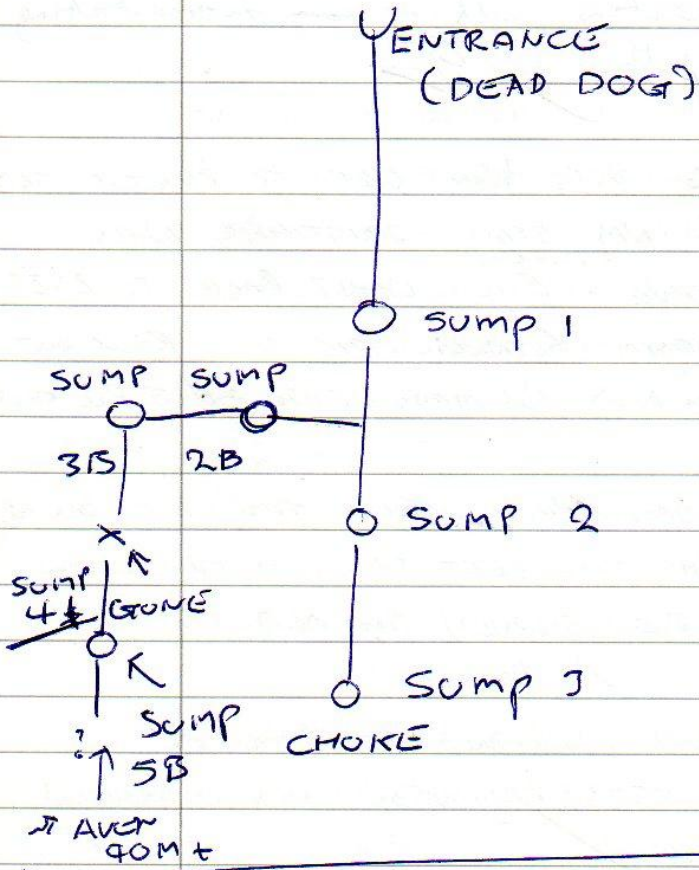 ENTRANCE
(DEAD DOG)
SUMP 1
SUMP SUMP
3B 2B
SUMP 2
SUMP
4
GONE
SUMP 3
CHOKE
SUMP
5B
?
AVEN